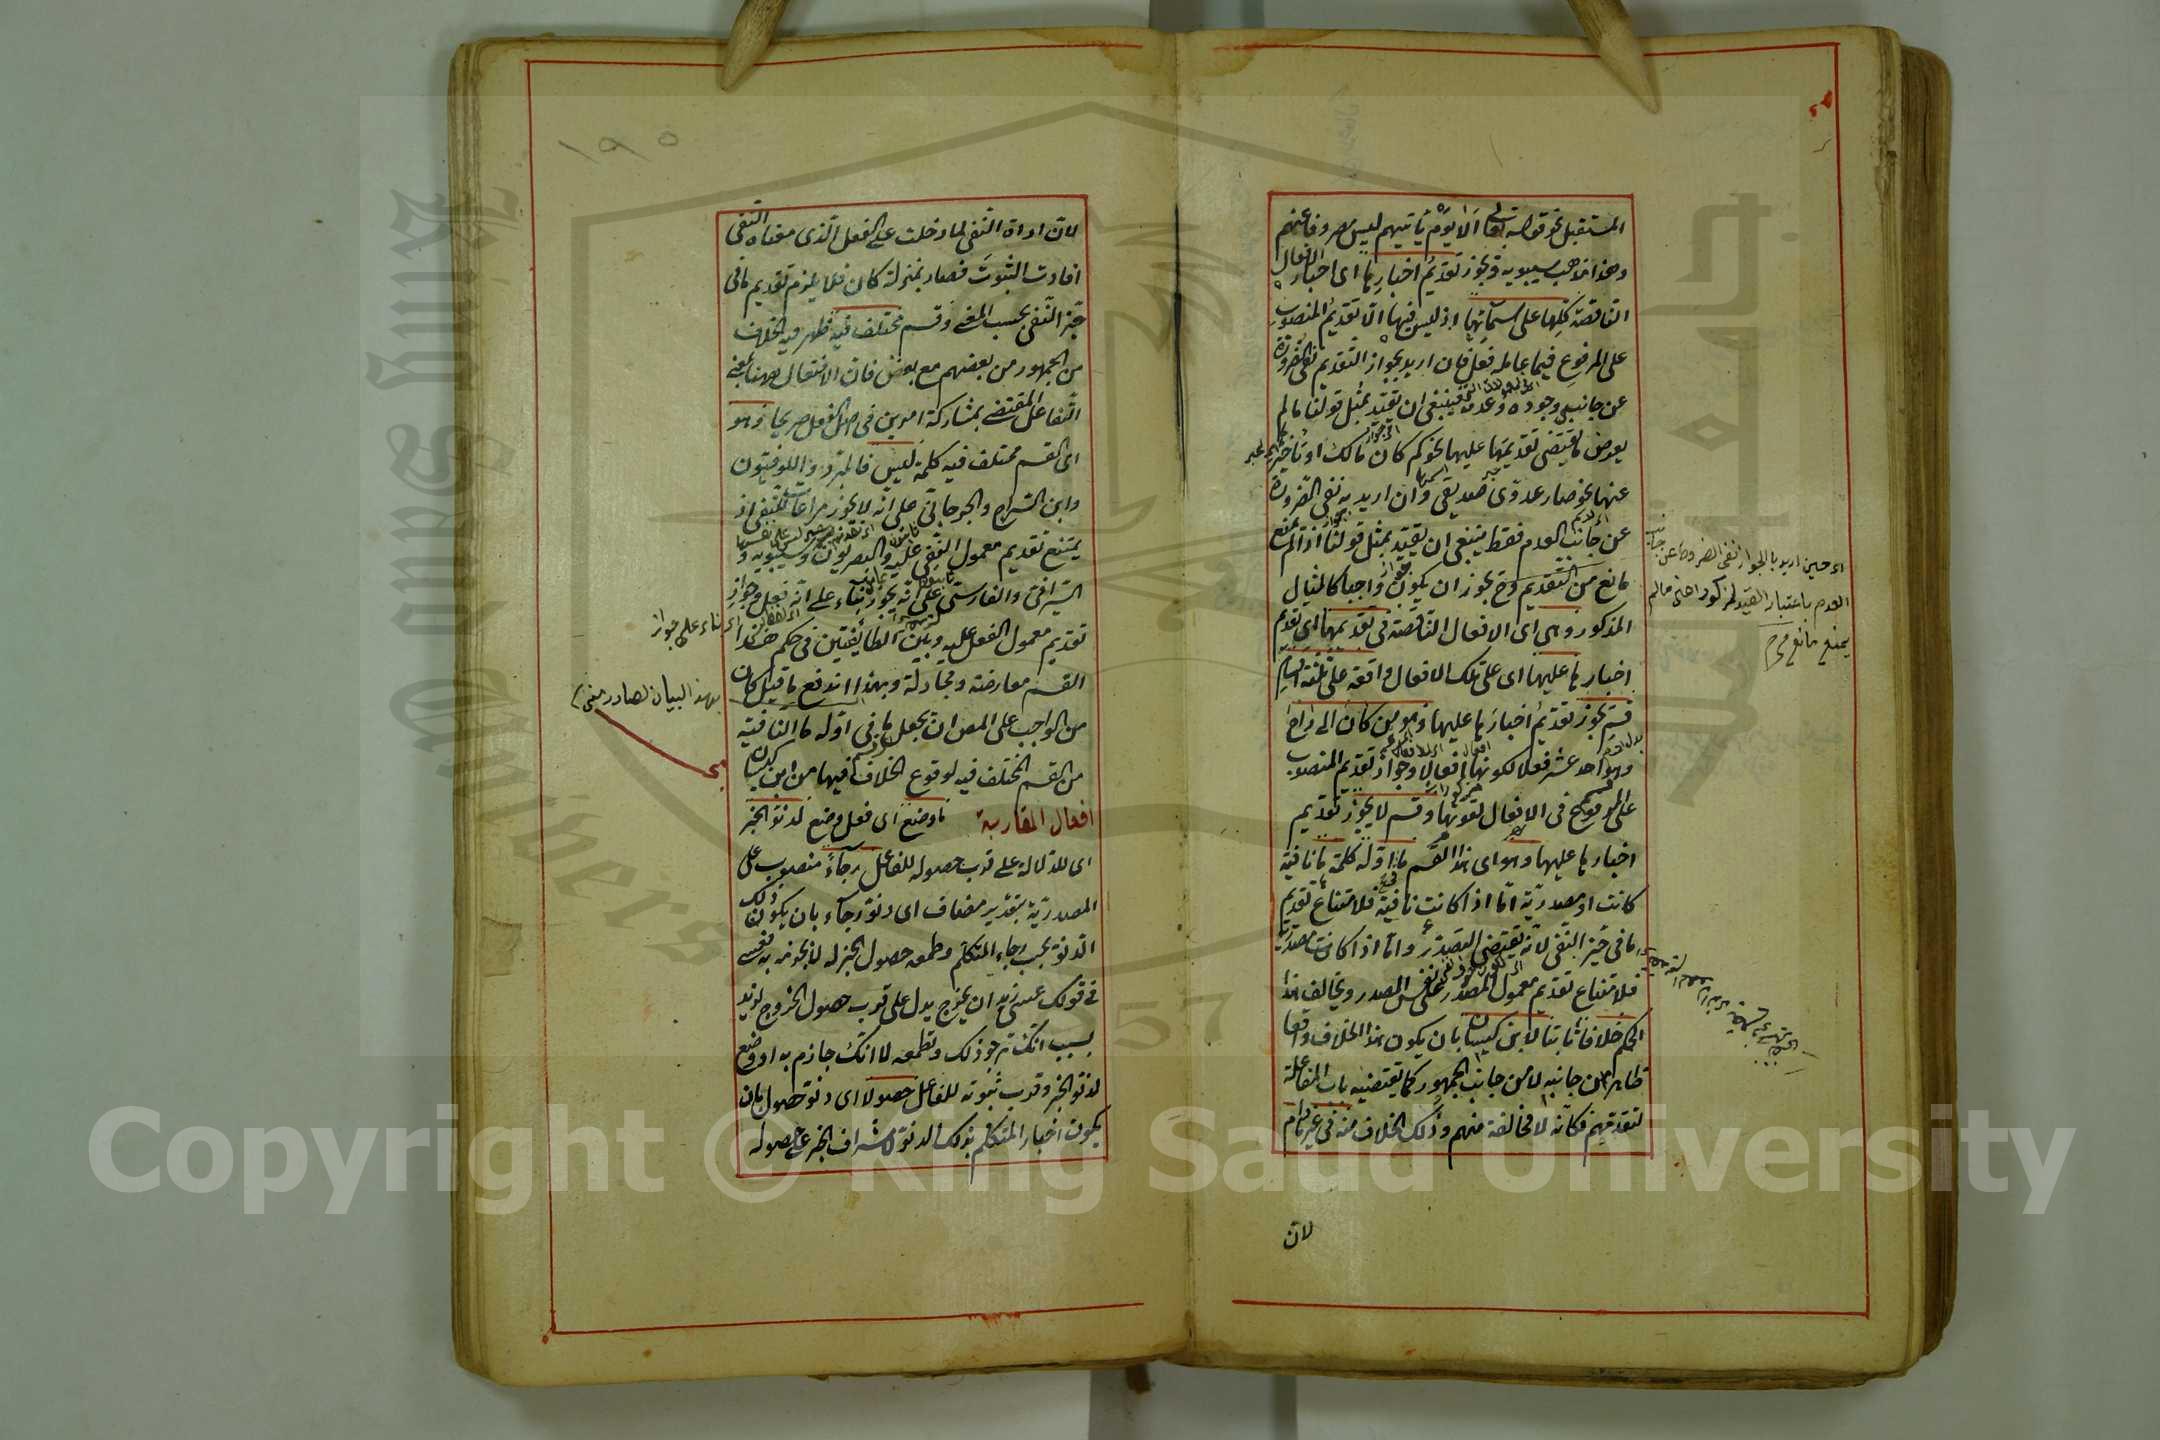 المستقبل نحو قوله تعالى الا يوم ياتيهم ليس مصروفا عنهم
وهذا مذهب سيبويه ويجوز تقديم اخبارها اى اخبار الافعال
الناقصة كلها على اسمائها اذ ليس فيها الا تقديم المنصوب
على المرفوع فيما عامله فعل فان اريد بجواز التقديم نفى الضرورة
عن جانبى وجوده وعدمه فينبغى ان تقيد بمثل قولنا مالم
يعرض ما يقتضى تقديمها عليها نحو كم كان مالك او تاخيرها
عنها نحو صار عدوى صديقى وان اريد به نفى الضرورة
عن جانب العدم فقط ينبغى ان يقيد بمثل قولنا اذا لم يمنع
مانع من التقديم وح يجوز ان يكون واجبا كالمثال
المذكور وهى اى الافعال الناقصة فى تقديمها اى تقديم
اخبارها عليها اى على تلك الافعال واقعة على ثلثة اقسام
قسم يجوز تقديم اخبارها عليها وهو من كان الى راح
وهو احد عشر فعلا لكونها افعالا وجواز تقديم المنصوب
على المرفوع فى الافعال لقوتها وقسم لا يجوز تقديم
اخبارها عليها وهو اى هذا القسم ما اوله كلمة ما نافية
كانت او مصدرية اما اذا كانت نافية فلامتناع تقديم
ما فى حيز النفى لانه يقتضى التصدر واما اذا كانت مصدرية
فلامتناع تقديم معمول المصدر على نفس المصدر ويخالف هذا
الحكم خلافا ثابتا لابن كيسان بان يكون هذا الخلاف واقعا
ظاهرا من جانبه لا من جانب الجمهور كما يقتضيه باب المفاعلة
لتقدمهم فكأنه لا مخالفة منهم وذلك الخلاف منه فى غير مادام
لان
اى حين اريد بالجواز نفى الضرورة عن جانب
العدم باعتبار القيد المذكور اعنى مالم
يمنع مانع
١٩٥
لان اداة النفى لما دخلت على الفعل الذى معناه النفى
افادت الثبوت فصار بمنزلة كان فلا يلزم تقديم ما فى
حيز النفى بحسب المعنى وقسم مختلف فيه ظهر فيه الخلاف
من الجمهور من بعضهم مع بعض فان الافتعال ههنا بمعنى
التفاعل المقتضى بمشاركة امرين فى اصل الفعل صريحا وهو
اى القسم المختلف فيه كلمة ليس فالمبرد والكوفيون
وابن السراج والجرجانى على انه لا يجوز مراعاة للنفى اذ
يمتنع تقديم معمول النفى عليه والبصريون وسيبويه و
السيرافى والفارسى على انه يجوز بناء على انه فعل وجواز
تقديم معمول الفعل عليه وبين الطائفتين فى حكم هذا
القسم معارضة ومجادلة وبهذا اندفع ما قيل كان
من الواجب على المص ان يجعل ما فى اوله ما النافية
من القسم المختلف فيه لوقوع الخلاف فيها من ابن كيسان
افعال المقاربة ما وضع اى فعل وضع لدنو الخبر
اى للدلالة على قرب حصوله للفاعل رجاء منصوب على
المصدرية بتقدير مضاف اى دنو رجاء بان يكون ذلك
الدنو بحسب رجاء المتكلم وطمعه حصول الخبر له لا بجزمه به فعسى
فى قولك عسى زيد ان يخرج يدل على قرب حصول الخروج لزيد
بسبب انك ترجو ذلك وتطمعه لا انك جازم به او وضع
لدنو الخبر وقرب ثبوته للفاعل حصولا اى دنو حصول بان
يكون اخبار المتكلم بذلك الدنو لاشراف الخبر على حصوله
اى بناء على جواز
بهذا البيان